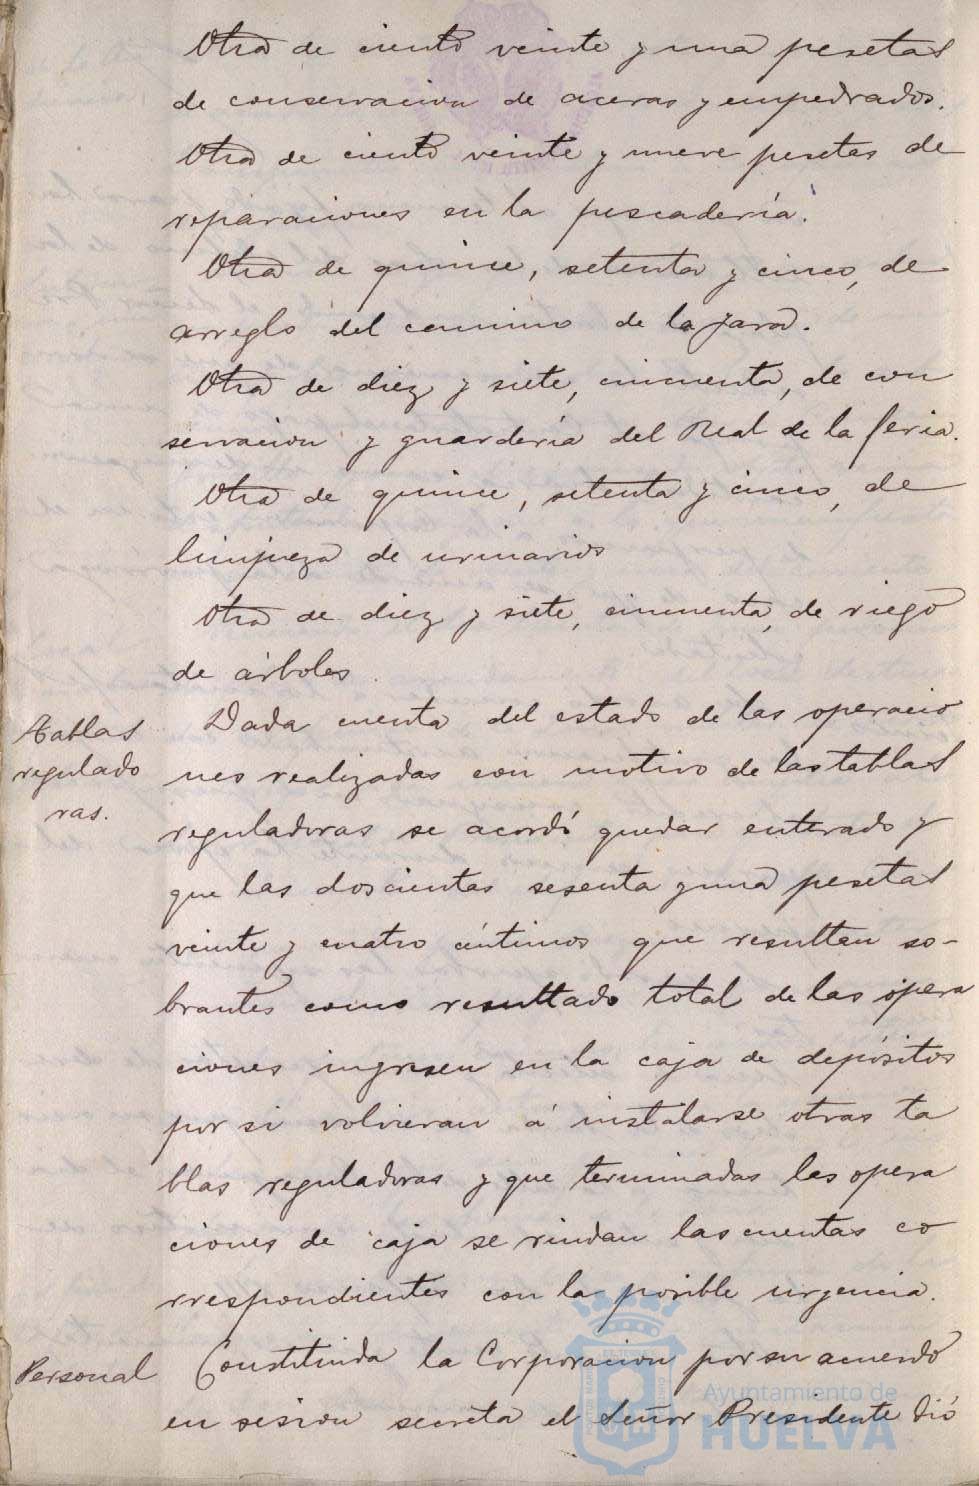 Otra de ciento veinte y una pesetas
de conservacion de aceras y empedrados.
Otra de ciento veinte y nueve pesetas de
reparaciones en la pescadería.
Otra de quince, setenta y cinco, de
arreglo del camino de la Jara.
Otra de diez y siete, cincuenta, de con
servacion y guardería del Real de la feria.
Otra de quince, setenta y cinco, de
limpieza de urinarios
Otra de diez y siete, cincuenta, de riego
de árboles
Tablas
regulado
ras.
Dada cuenta del estado de las operacio
nes realizadas con motivo de las tablas
reguladoras se acordó quedar enterado y
que las doscientas sesenta y una pesetas
veinte y cuatro céntimos que resultan so-
brantes como resultado total de las opera
ciones ingresen en la caja de depósitos
por si volvieran á instalarse otras ta
blas reguladoras y que terminadas las opera
ciones de caja se rindan las cuentas co
rrespondientes con la posible urgencia.
Personal
Constituida la Corporacion por su acuerdo
en sesion secreta el Señor Presidente dió
Ayuntamiento de
HUELVA